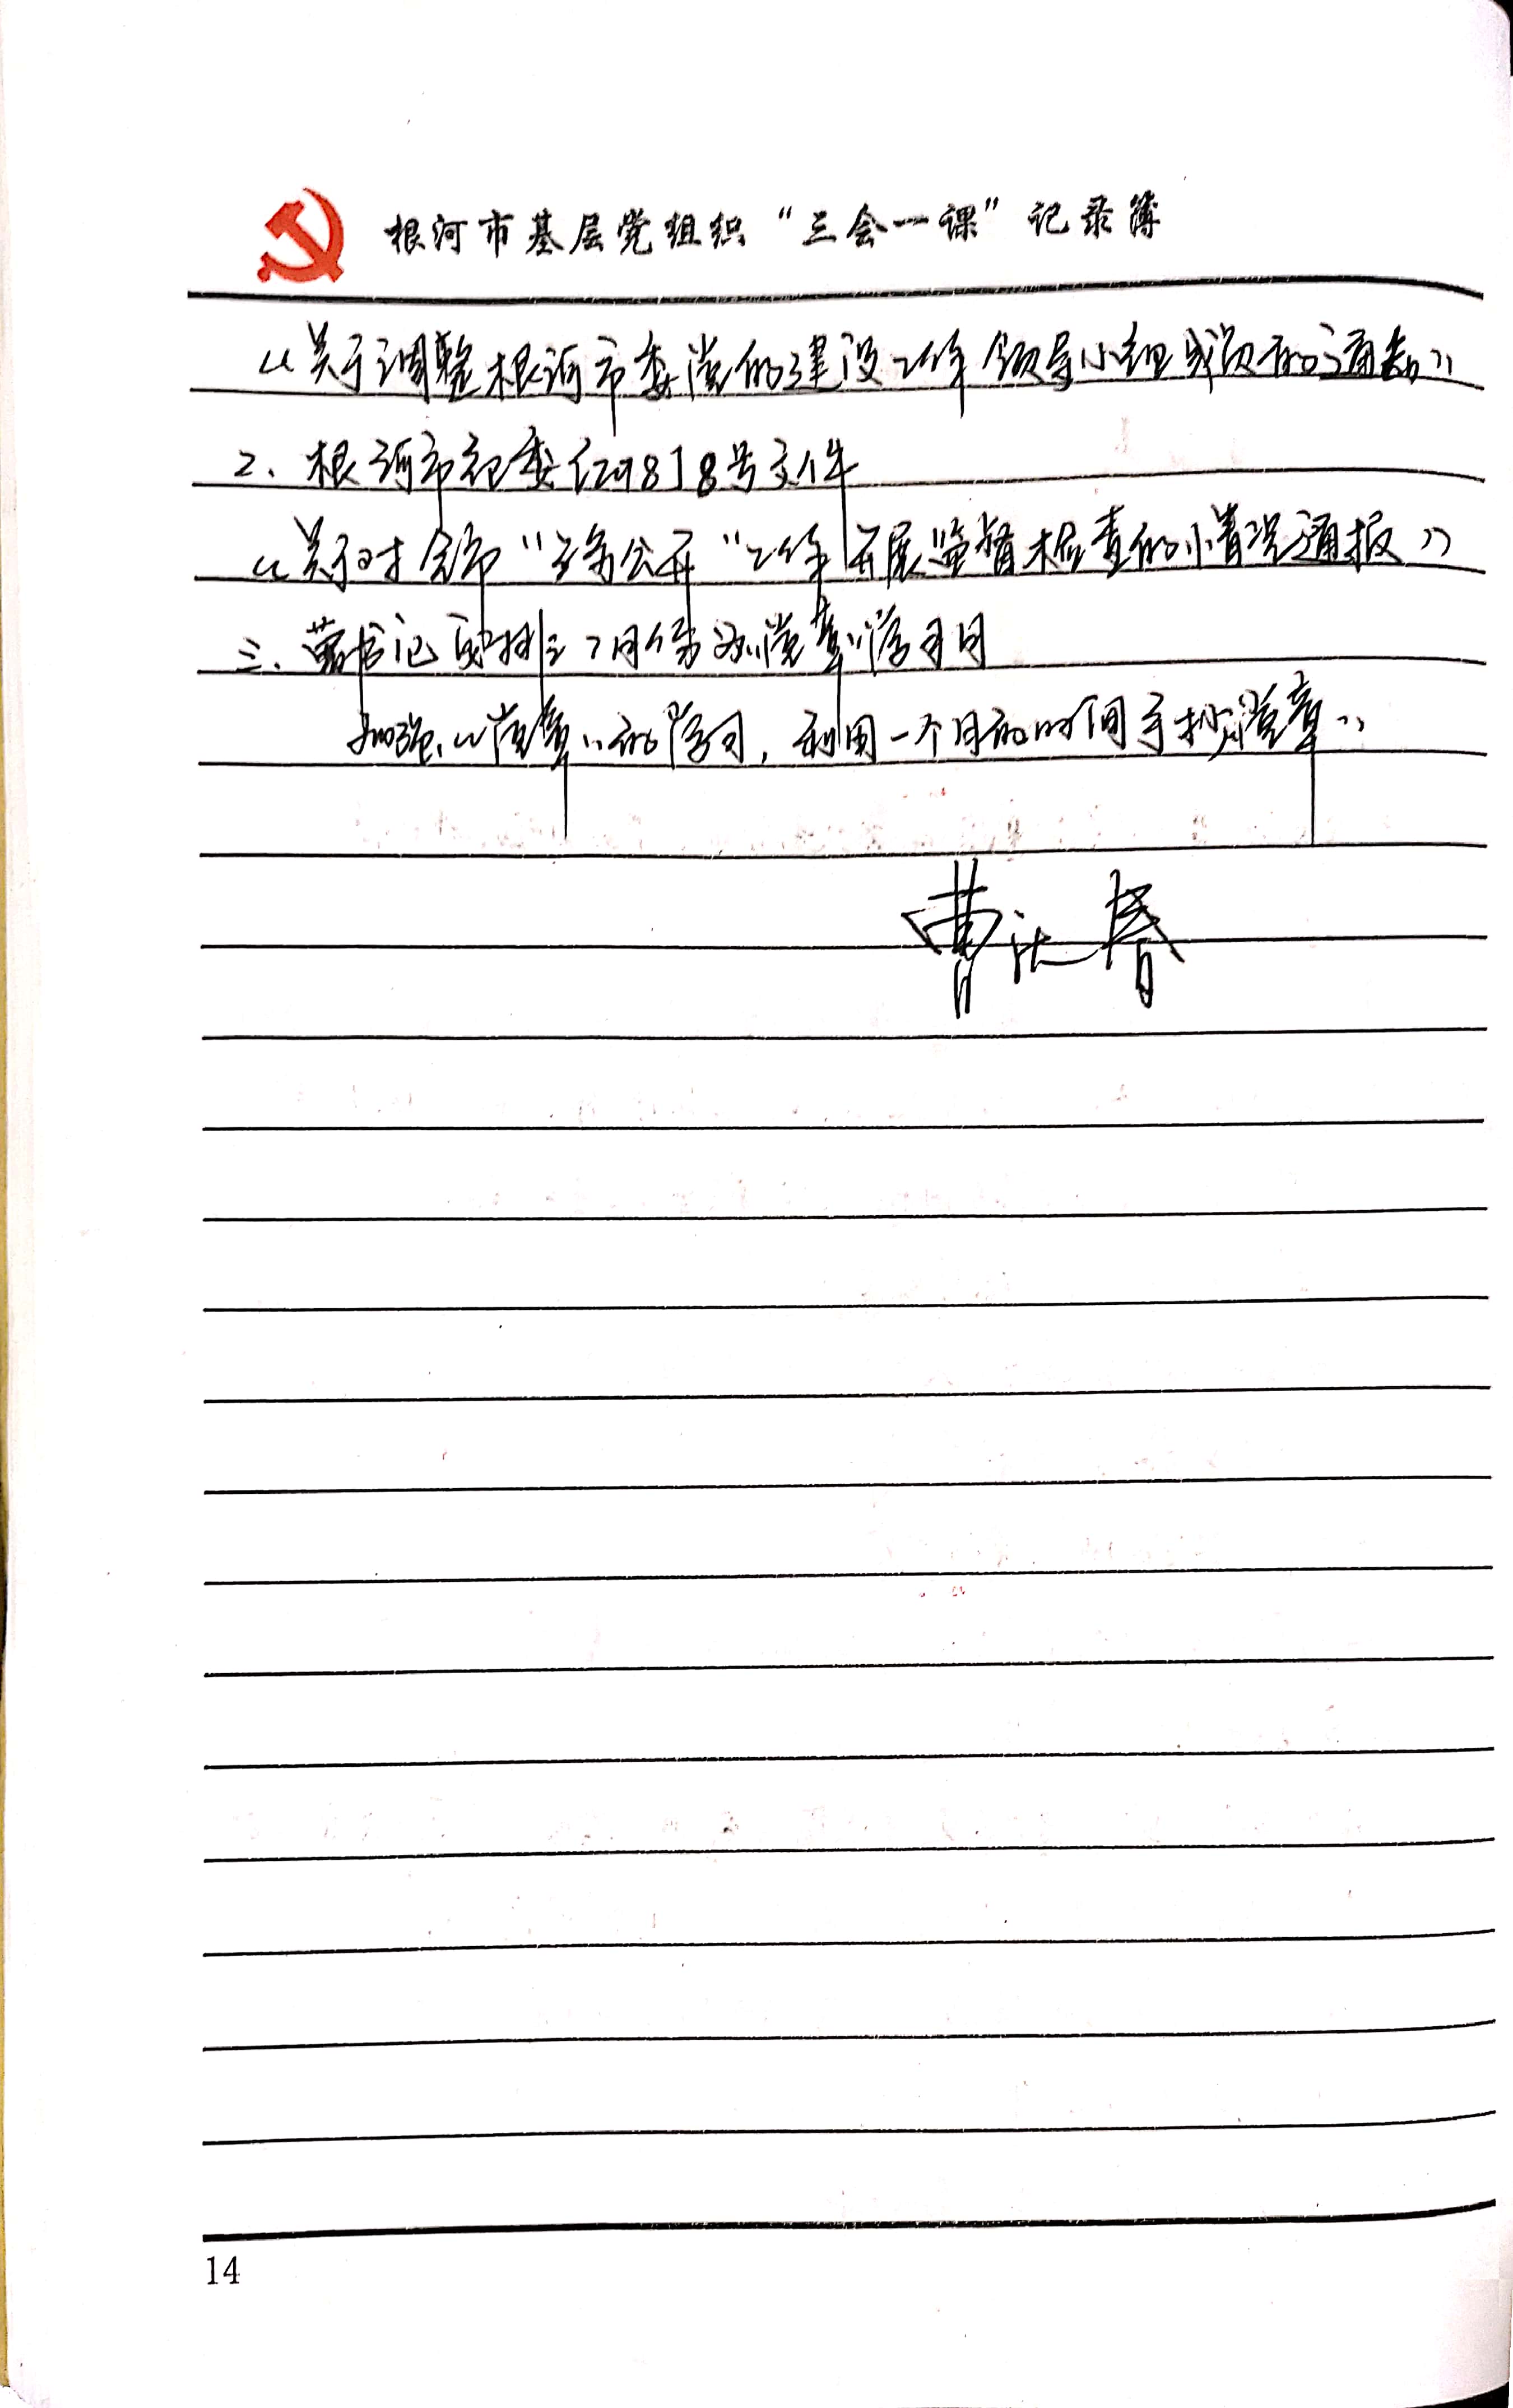 根河市基层党组织“三会一课”记录簿
《关于调整根河市委党的建设工作领导小组成员的通知》
2、根河市纪委 8号文件
《关于对全市“三务公开”工作开展监督检查的情况通报》
三、书记安排7月份为“党章”学习月
加强“党章”的学习，利用一个月的时间手抄“党章”
曹
14